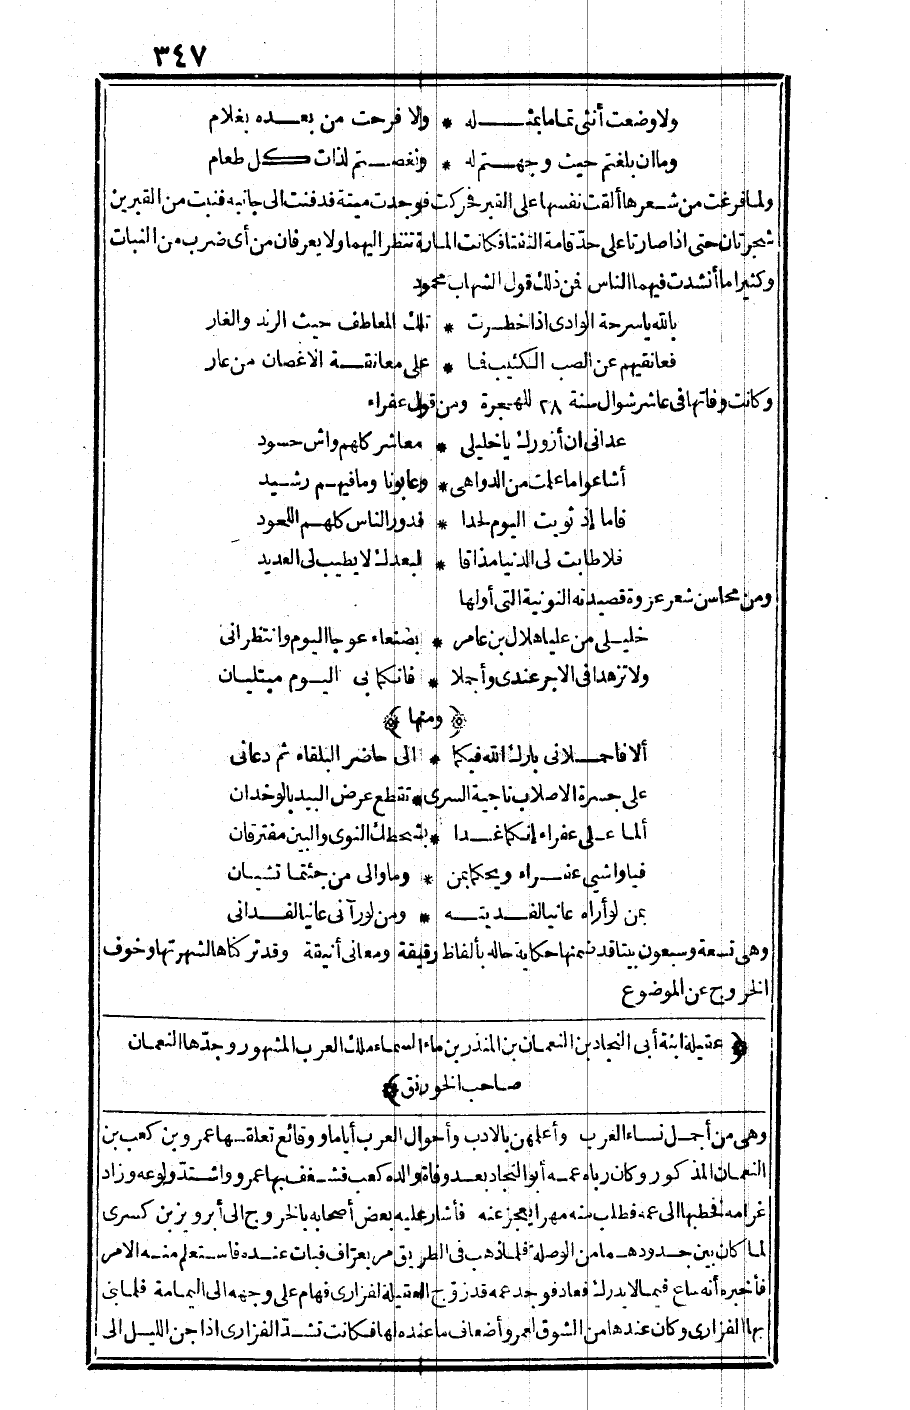 ٣٤٧
ولا وضعت أنثى تماما بمثله * ولا فرحت من بعده بغلام
وما ان بلغتم حيث وجهتم له * ونغصتم لذات كل طعام
ولما فرغت من شعرها ألقت نفسها على القبر فحركت فوجدت ميتة فدفنت الى جانبه فنبت من القبرين
شجرتان حتى اذا صارتا على حد قامة التفتا فكانت المارة تنظر اليهما ولا يعرفان من أى ضرب من النبات
وكثيرا ما أنشدت فيهما الناس فمن ذلك قول الشهاب محمود
بالله يا سرحة الوادى اذا خطرت * تلك المعاطف حيث الرند والغار
فعانقيهم عن الصب الكئيب فما * على معانقة الاغصان من عار
وكانت وفاتها فى عاشر شوال سنة ٢٨ للهجرة ومن قول عفراء
عدانى ان أزورك يا خليلى * معاشر كلهم واش حسود
أشاعوا ما علمت من الدواهى * وعابونا وما فيهم رشيد
فاما إذ ثويت اليوم لحدا * فدور الناس كلهم اللحود
فلا طابت لى الدنيا مذاقا * لبعدك لا يطيب لى العديد
ومن محاسن شعر عروة قصيدته النونية التى أولها
خليلى من عليا هلال بن عامر * بصنعاء عوجا اليوم وانتظرانى
ولا تزهدا فى الاجر عندى وأجملا * فانكما بى اليوم مبتليان
﴿ ومنها ﴾
ألا فاحملانى بارك الله فيكما * الى حاضر البلقاء ثم دعانى
على جسرة الاصلاب ناجية السرى * تقطع عرض البيد بالوخدان
ألما على عفراء إنكما غدا * بشحط النوى والبين مفترقان
فيا واشيى عفراء ويحكما بمن * وما والى من جئتما تشيان
بمن لو أراه عانيا لفديته * ومن لو رآنى عانيا لفدانى
وهى تسعة وسبعون بيتا قد ضمنها حكاية حاله بألفاظ رقيقة ومعانى أنيقة وقد تركناها لشهرتها وخوف
الخروج عن الموضوع
﴿ عقيلة ابنة أبى النجاد بن النعمان بن المنذر بن ماء السماء ملك العرب المشهور وجدها النعمان
صاحب الخورنق ﴾
وهى من أجمل نساء العرب وأعلمهن بالادب وأحوال العرب أياما ووقائع تعلق بها عمرو بن كعب بن
النعمان المذكور وكان رباه عمه أبو النجاد بعد وفاة والده كعب فشغف بها عمرو واشتد ولوعه وزاد
غرامه فخطبها الى عمه فطلب منه مهرا يعجز عنه فأشار عليه بعض أصحابه بالخروج الى أبرويز بن كسرى
لما كان بين جدودهما من الوصلة فلما ذهب فى الطريق مر بعراف فبات عنده فاستعلم منه الامر
فأخبره أنه ساع فيما لا يدرك فعاد فوجد عمه قد زوج العقيلة لفزارى فهام على وجهه الى اليمامة فلما بنى
بها الفزارى وكان عندها من الشوق لعمرو أضعاف ما عنده لها فكانت تشد الفزارى اذا جن الليل الى